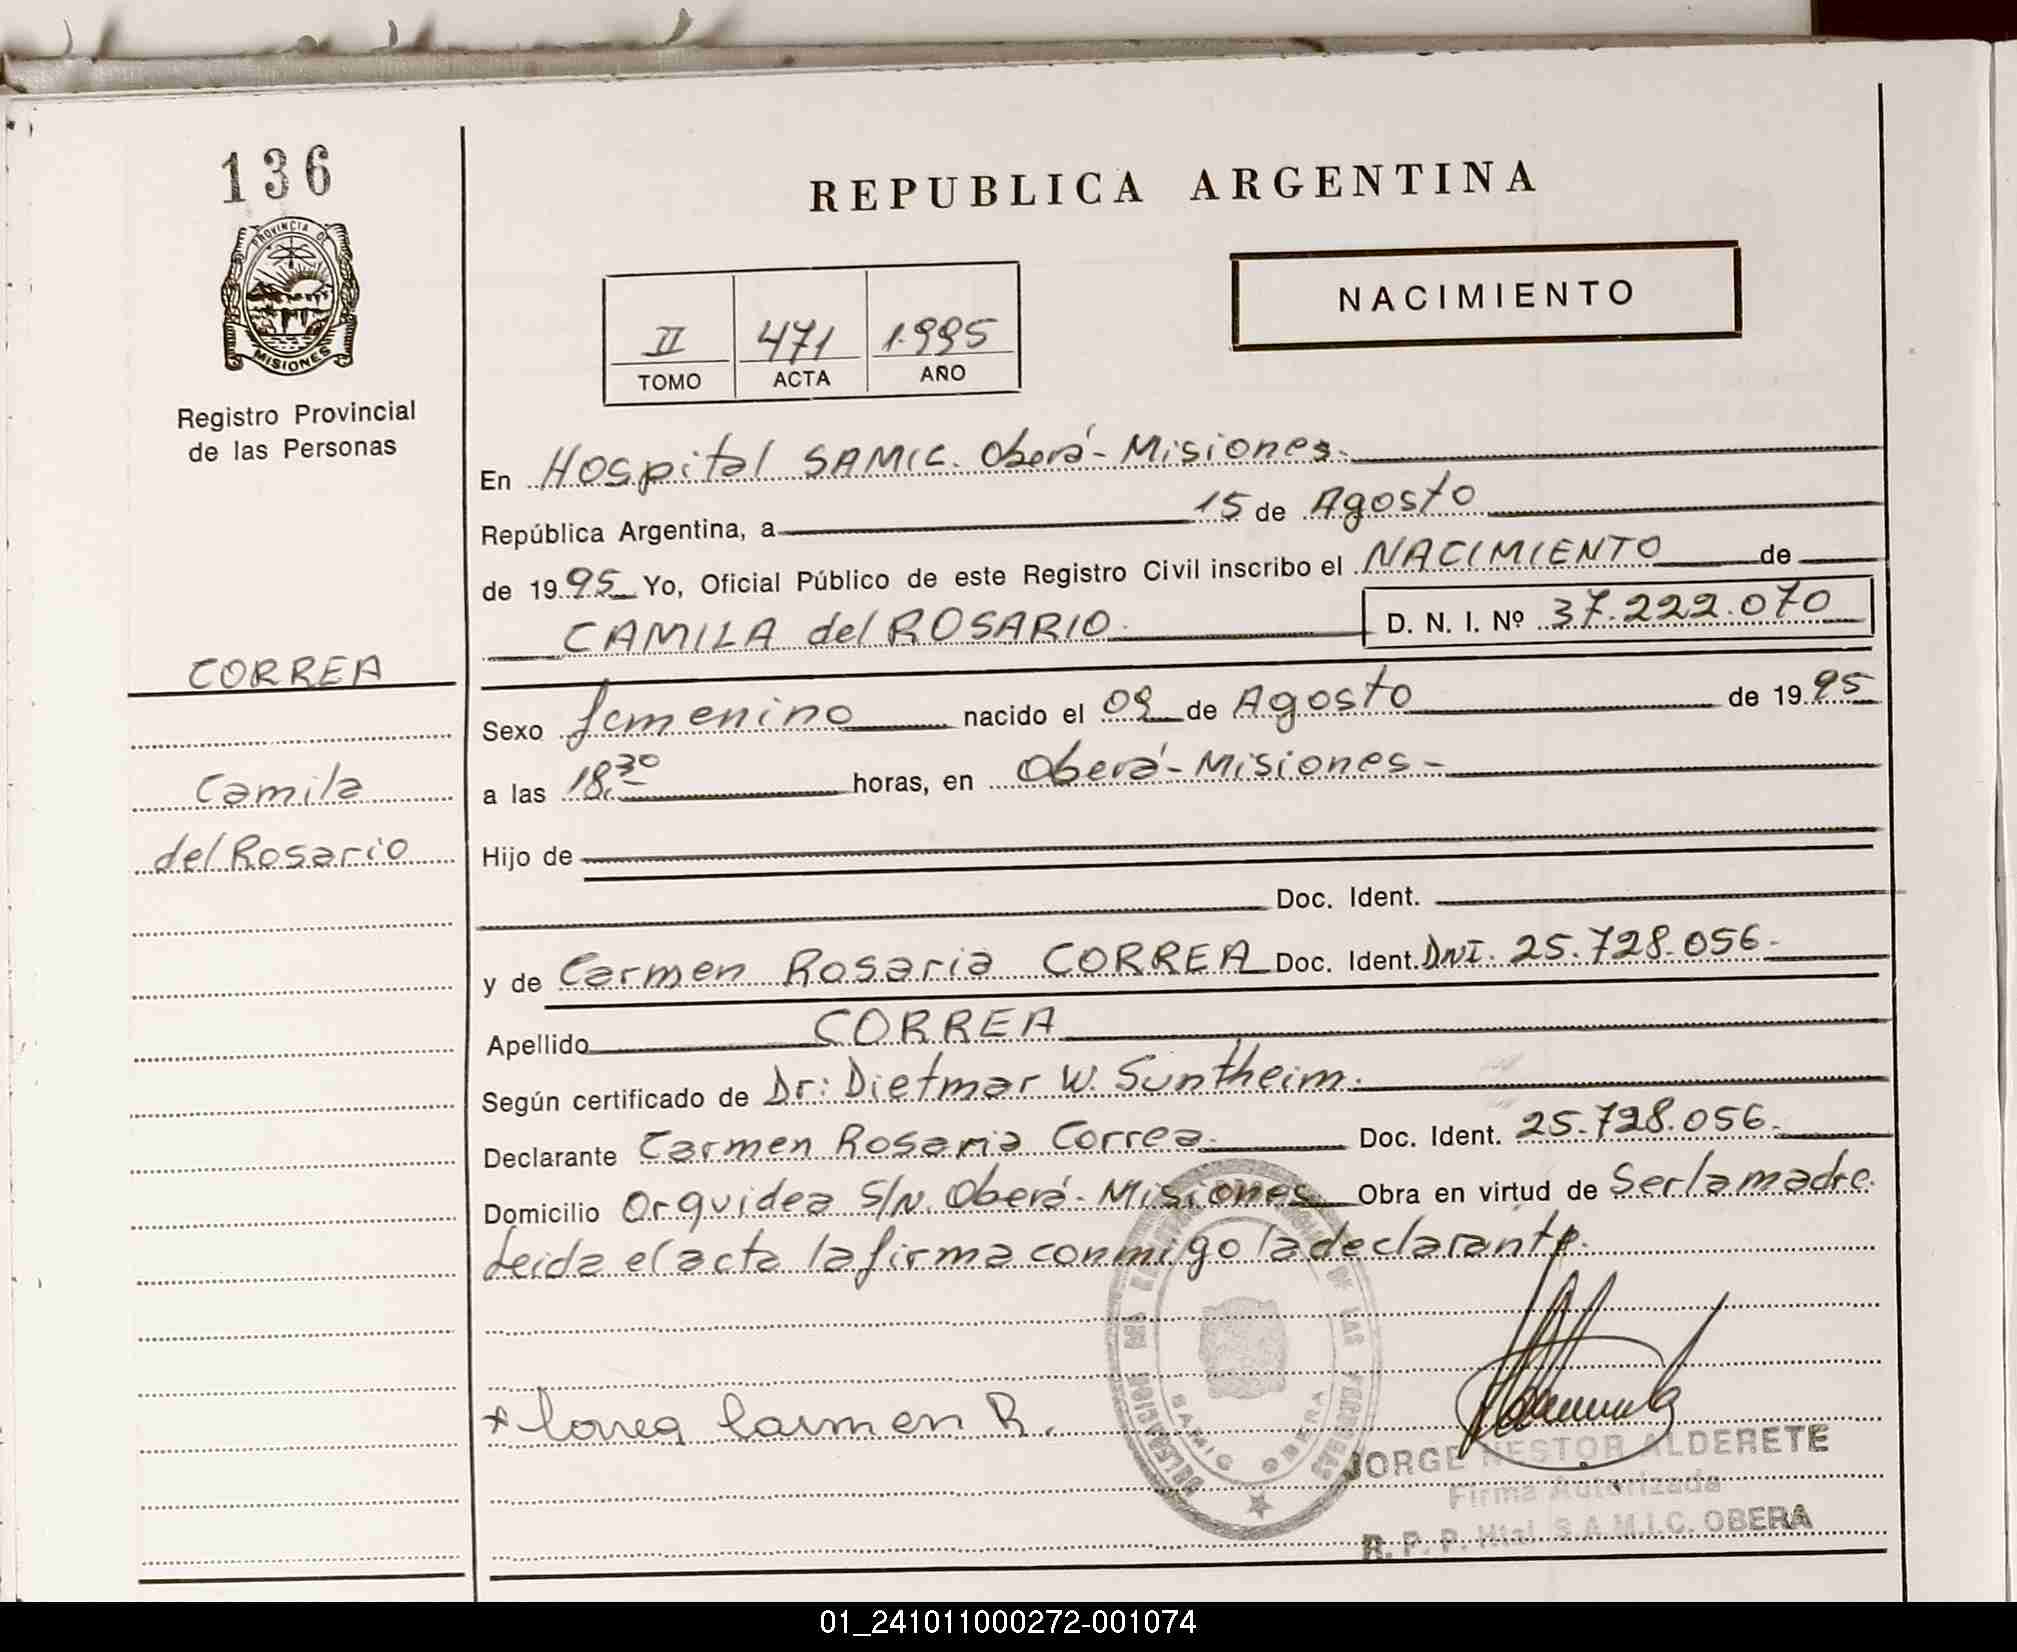 136
PROVINCIA DE
MISIONES
Registro Provincial
de las Personas
CORREA
Camila
del Rosario
REPUBLICA ARGENTINA
NACIMIENTO
II 471 1.995
TOMO ACTA AÑO
En Hospital SAMIC. Oberá-Misiones.
República Argentina, a 15 de Agosto
de 1995 Yo, Oficial Público de este Registro Civil inscribo el NACIMIENTO de
CAMILA del ROSARIO. D. N. I. Nº 37.222.070
Sexo femenino nacido el 09 de Agosto de 1995
a las 18.30 horas, en Oberá-Misiones-
Hijo de
Doc. Ident.
y de Carmen Rosaria CORREA Doc. Ident. DNI. 25.728.056.
Apellido CORREA
Según certificado de Dr: Dietmar W. Suntheim.
Declarante Carmen Rosaria Correa. Doc. Ident. 25.728.056.
Domicilio Orquidea S/N. Oberá-Misiones Obra en virtud de Ser la madre.
Leida el acta la firma conmigo la declarante.
Correa Carmen R.
DE LAS PERSONAS
SAMIC OBERA
JORGE NESTOR ALDERETE
Firma Autorizada
R. P. P. Htal. S.A.M.I.C. OBERA
01_241011000272-001074